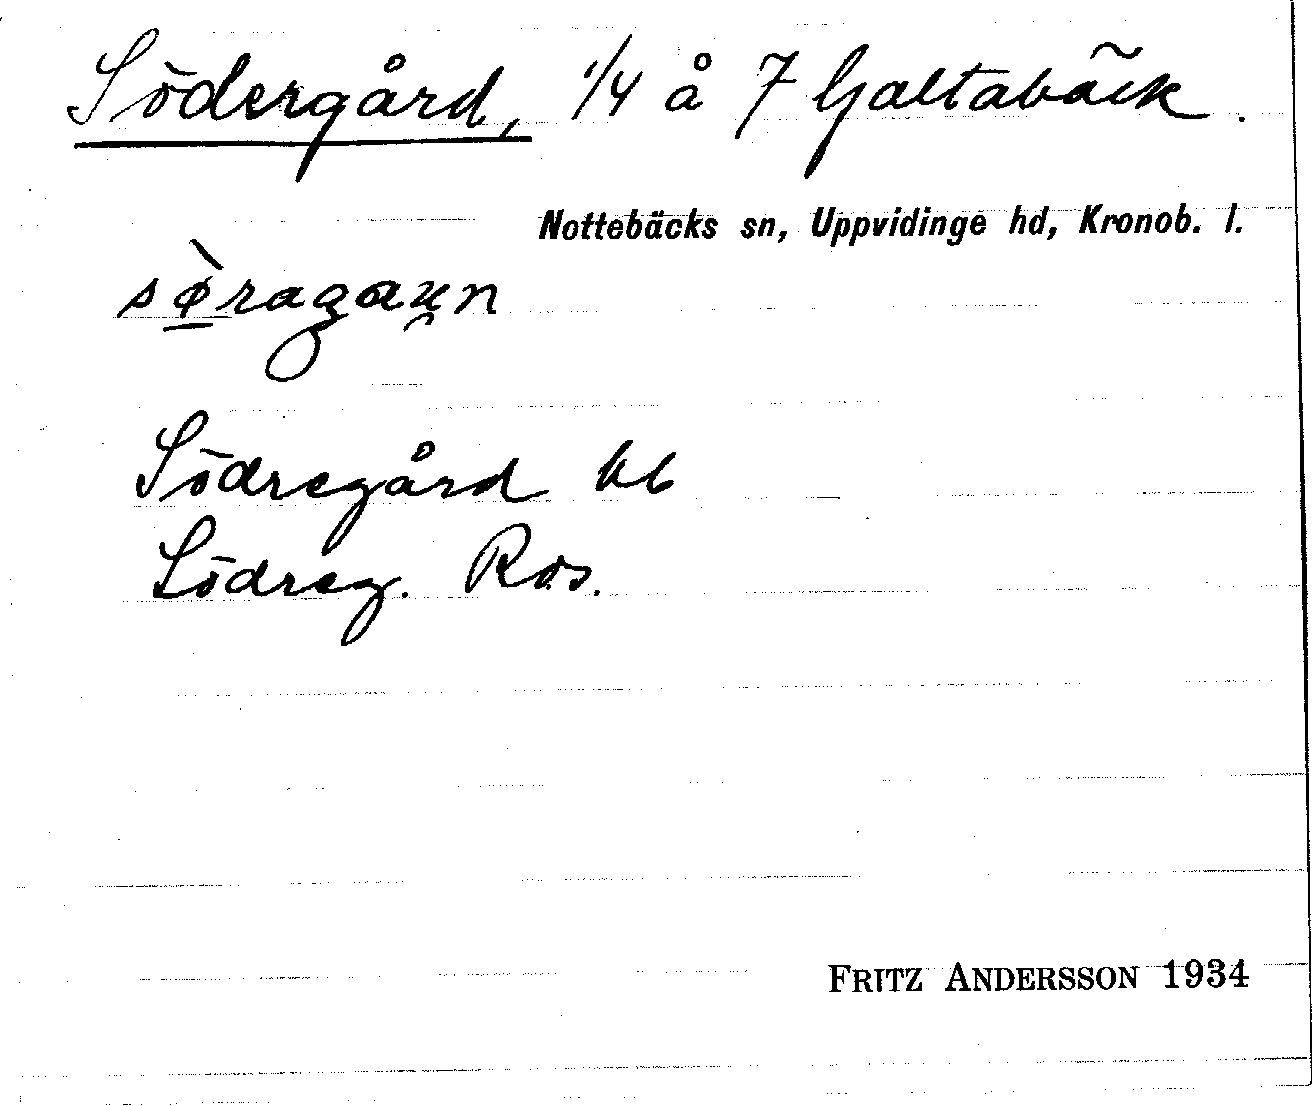 Södergård, 1/4 å 7 Galtabäck.
Nottebäcks sn, Uppvidinge hd, Kronob. l.
sø̀ragau̯n
Södregård kb
Södreg. Ros.
FRITZ ANDERSSON 1934